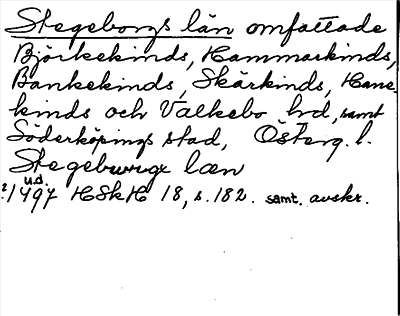 Stegeborgs län omfattade
Björkekinds, Hammarkinds,
Bankekinds, Skärkinds, Hane-
kinds och Valkebo hrd, samt
Söderköpings stad, Österg. l.
Stegeburgx læn
u.d.
?1497 HSkH 18, s. 182. samt. avskr.